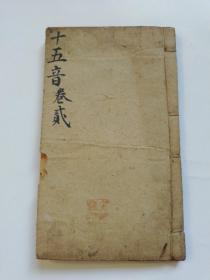 十五音卷貳